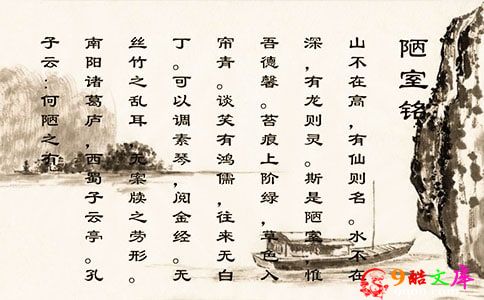 陋室铭
山不在高，有仙则名。水不在
深，有龙则灵。斯是陋室，惟
吾德馨。苔痕上阶绿，草色入
帘青。谈笑有鸿儒，往来无白
丁。可以调素琴，阅金经。无
丝竹之乱耳，无案牍之劳形。
南阳诸葛庐，西蜀子云亭。孔
子云：何陋之有
9酷文库